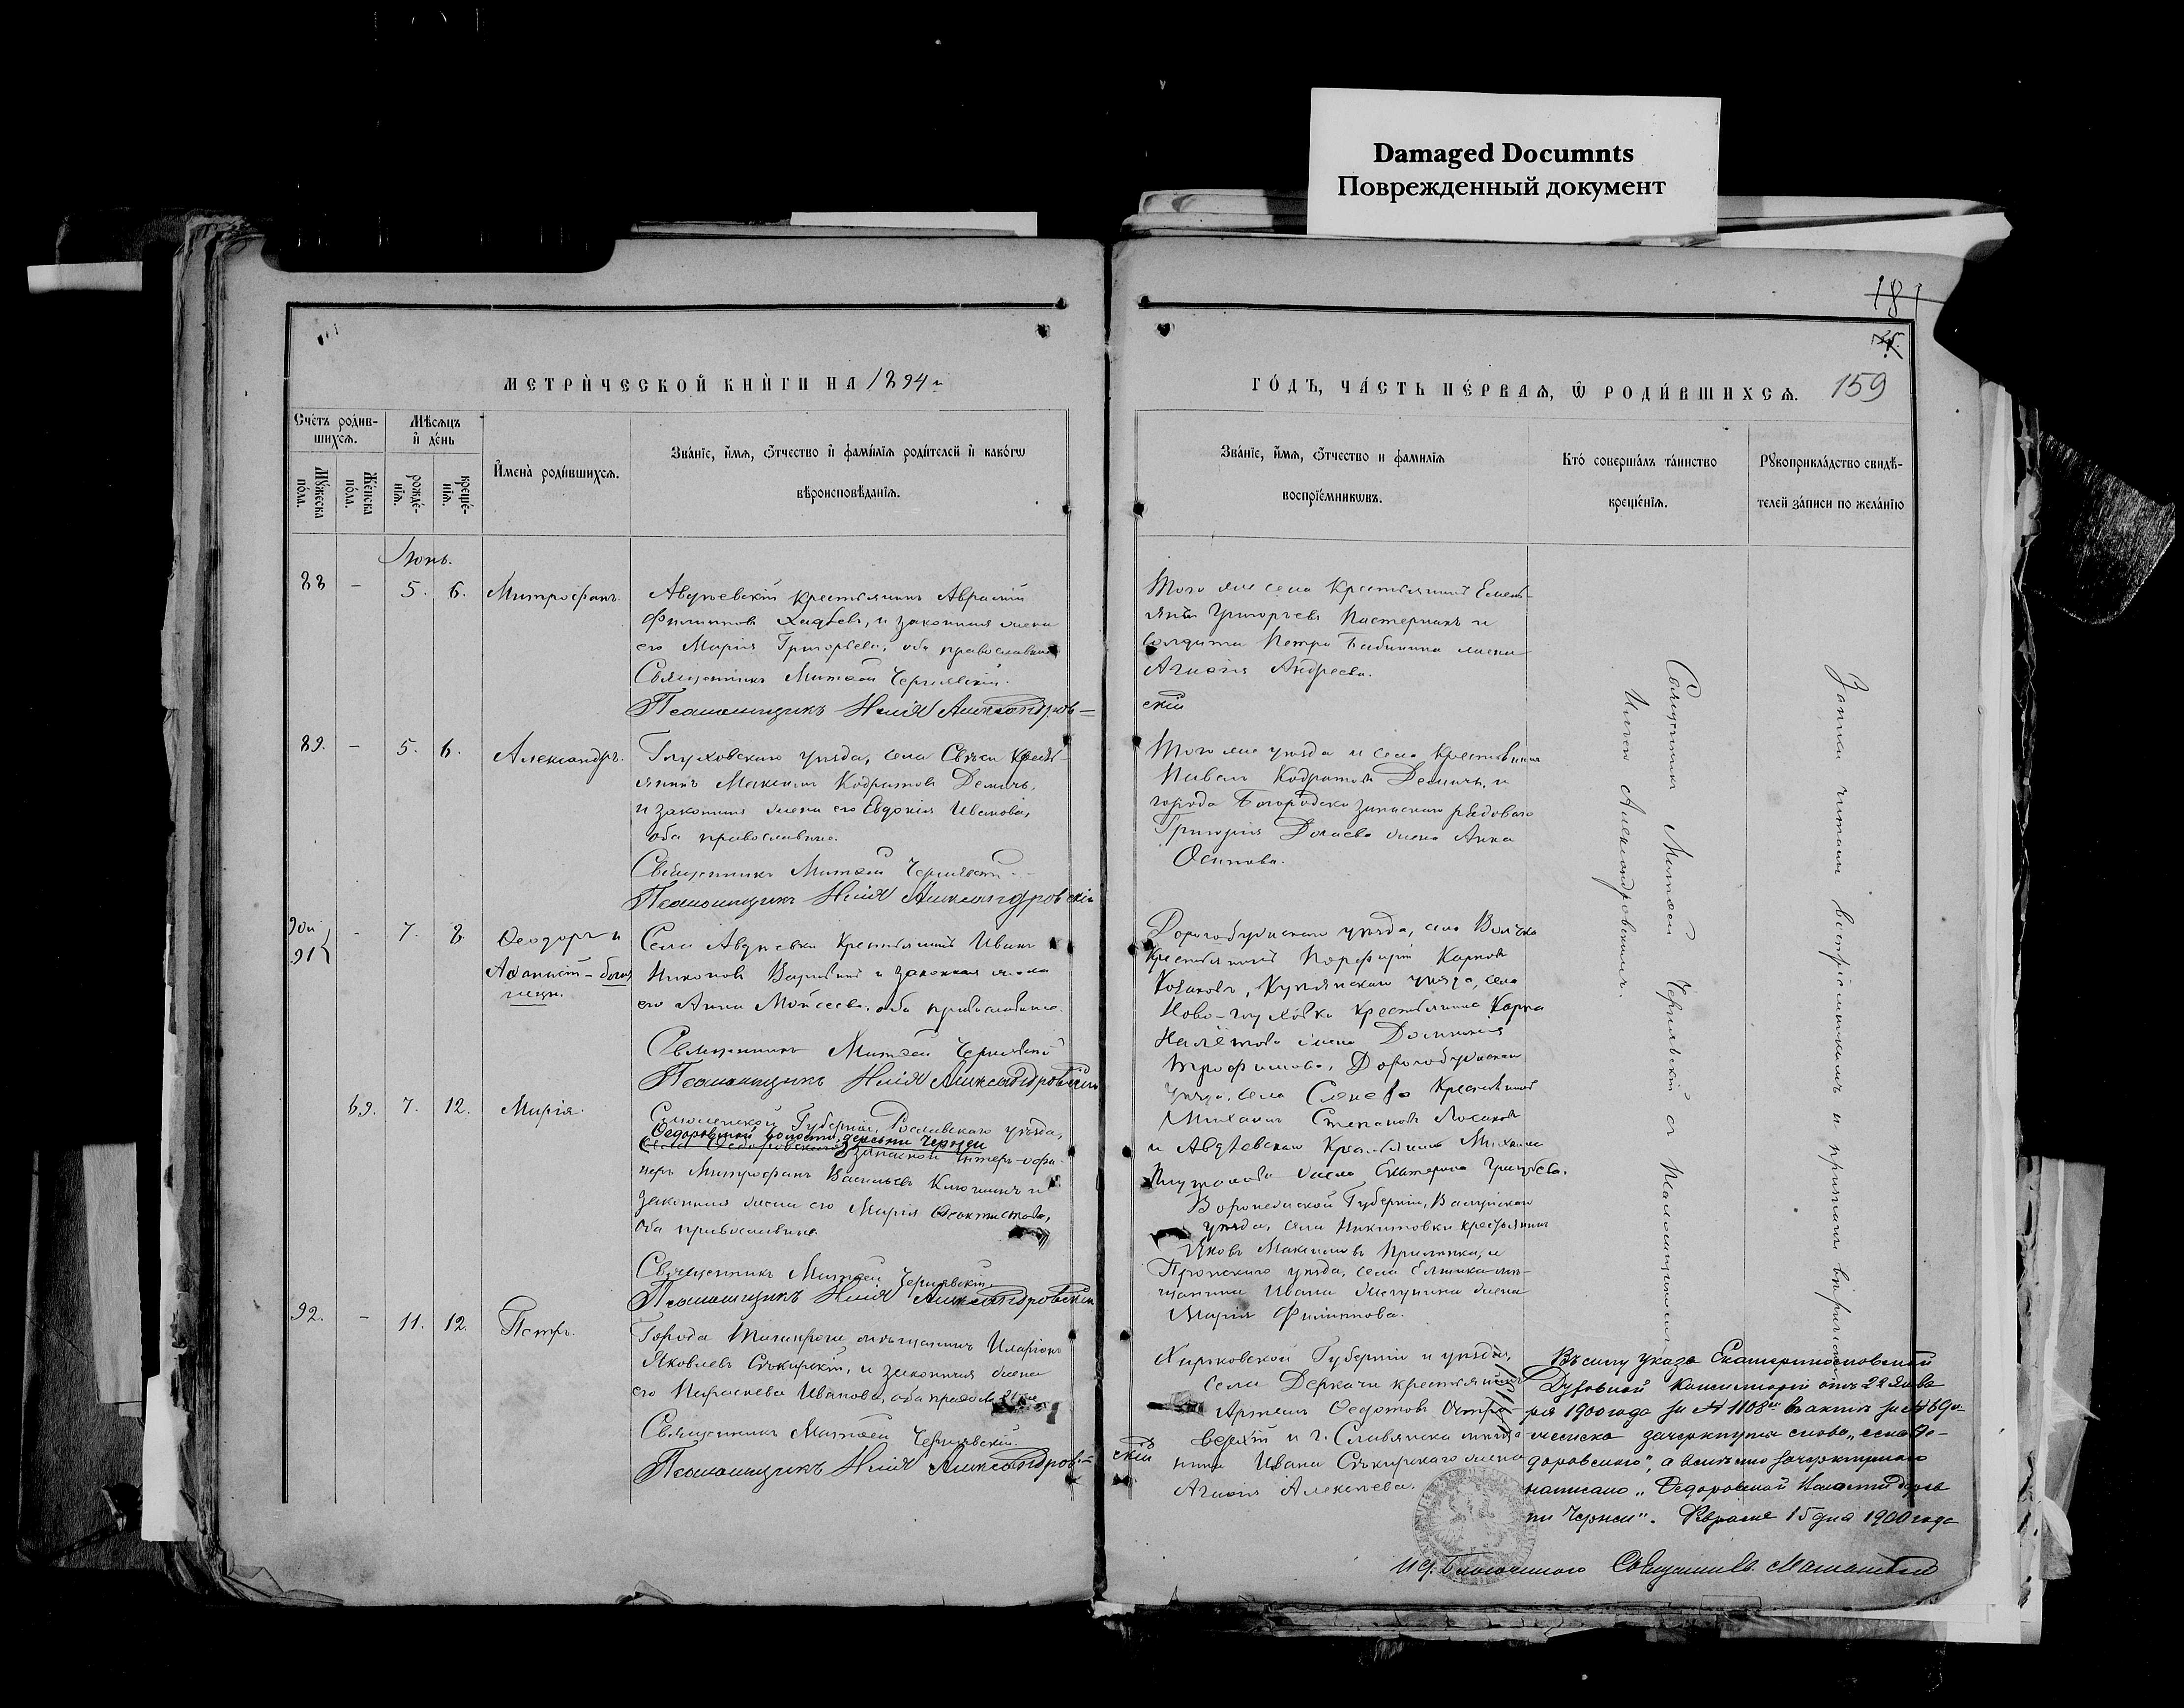 Damaged Documnts
Поврежденный документ
181
159
МЕТРИЧЕСКОЙ КНИГИ НА 1894 г
ГОДЪ, ЧАСТЬ ПЕРВАЯ, Ѿ РОДИВШИХСЯ.
Счетъ родив-
шихся.
Мѣсяцъ
и день
Мужеска
пола.
Женска
пола.
рожде-
нія.
креще-
нія.
Имена родившихся.
Званіе, имя, отчество и фамилія родителей и какогѡ
вѣроисповѣданія.
Званіе, имя, отчество и фамилія
воспріемникѡвъ.
Кто совершалъ таинство
крещенія.
Рукоприкладство свидѣ-
телей записи по желанію
Іюнь.
88 - 5. 6. Митрофанъ.
Авдѣевскій крестьянинъ Аврамій
Филипповъ Хадѣевъ, и законная жена
его Марія Григорьева, оба православные
Священникъ Матѳей Чернявскій.
Псаломщикъ Илія Александров=
Того же села крестьянинъ Емель-
янъ Григорьевъ Пастернакъ и
солдата Петра Бабинина жена
Агаѳія Андреева.
скій
89. - 5. 6. Александръ.
Глуховскаго уѣзда, села Свѣси крестья-
янинъ Максимъ Кодратовъ Демичъ,
и законная жена его Евдокія Иванова,
оба православные.
Священникъ Матѳей Чернявскій.
Псаломщикъ Илія Александровскій
Того же уѣзда и села крестьянинъ
Павелъ Кодратовъ Демичъ, и
города Богородска запаснаго рядоваго
Григорія Долаева жена Анна
Осипова.
90 и
91
- 7. 8. Ѳеодоръ и
Аѳанасій - близ
нецы.
Села Авдѣевки крестьянинъ Иванъ
Никоновъ и законная жена
его Анна Моисеева, оба православные.
Священникъ Матѳей Чернявскій
Псаломщикъ Илія Александровскій
Дорогобужскаго уѣзда, села Волочка
крестьянинъ Порфирій Карповъ
Козаковъ, Купянскаго уѣзда, села
Ново-глуховки крестьянина Карпа
Налётова жена Домникія
Трофимова, Дорогобужскаго
уѣзда, села крестьянинъ
Михаилъ Степановъ Лосаковъ
и Авдѣевскаго крестьянина Михаила
жена Екатерина Григорьева.
69. 7. 12. Марія.
Смоленской Губерніи, Рославскаго уѣзда,
Ѳедоровской волости, деревни Чернеи
села Ѳедоровскаго запасной унтеръ-офи-
церъ Митрофанъ Васильевъ Ключникъ и
законная жена его Марія Ѳеоктистова,
оба православные.
Священникъ Матѳей Чернявскій.
Псаломщикъ Илія Александровскій
Воронежской Губерніи, Валуйскаго
уѣзда, села Никитовки крестьянинъ
Яковъ Максимовъ Прилѣпка, и
Пронскаго уѣзда, села мѣ-
щанина Ивана жена
Марія Филиппова.
92. - 11. 12. Петръ.
Города Таганрога мѣщанинъ Иларіонъ
Яковлевъ Сѣкирскій, и законная жена
его Параскева Иванова, оба православные
Священникъ Матѳей Чернявскій.
Псаломщикъ Илія Александров=
скій
Харьковской Губерніи и уѣзда,
села Деркачи крестьянинъ
Артемъ Ѳедотовъ Остро-
верхій и г. Славянска мѣща-
нина Ивана Сѣкирскаго жена
Агаѳія Алексѣева.
Священникъ Матѳей Чернявскій съ Псаломщикомъ
Иліею Александровскимъ.
Запись читали воспріемникамъ и
Въ силу указа Екатеринославской
Духовной Консисторіи отъ 22 Янва
ря 1900 года за № 1108 въ актѣ за № 69 
женска зачеркнуты слова „села Ѳе-
доровскаго“, а вмѣсто зачеркнутаго
написано „Ѳедоровской волости дерев
ни Чернеи“. Февраля 15 дня 1900 года
И. д. Благочиннаго Священникъ